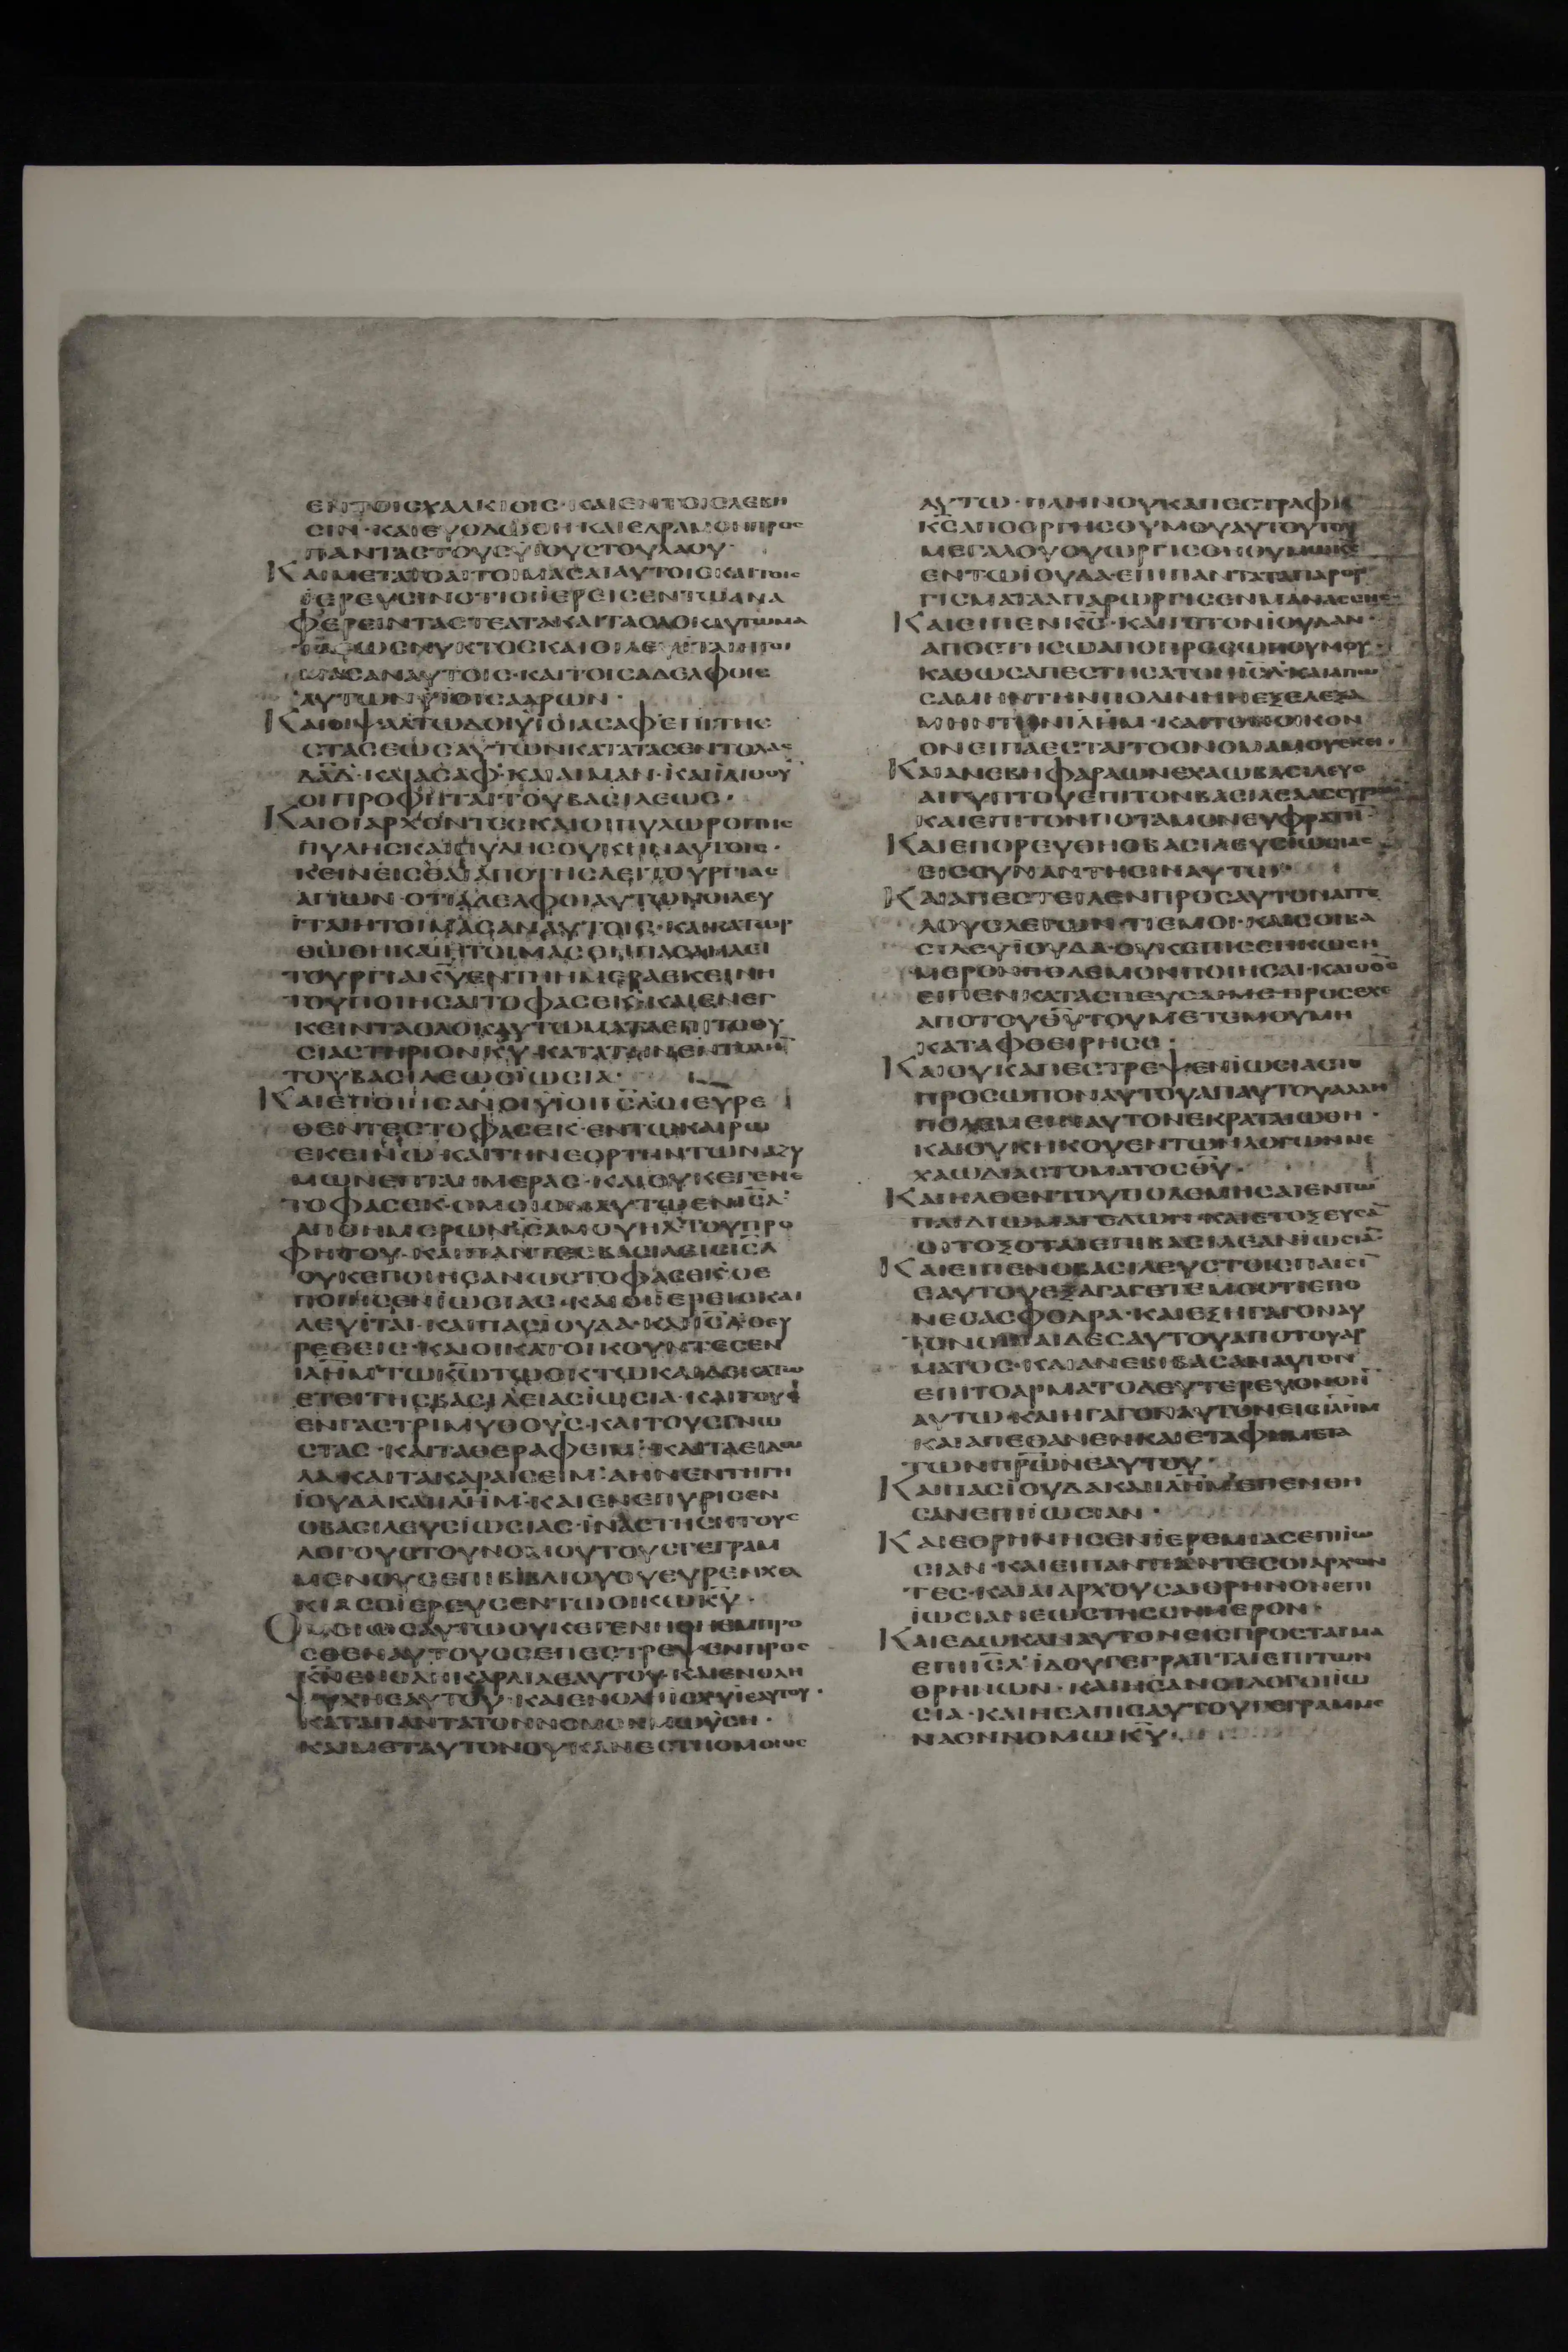 ΕΝΤΟΙΣΧΑΛΚΙΟΙΣ·ΚΑΙΕΝΤΟΙΣΛΕΒΗ
ΣΙΝ·ΚΑΙΕΥΟΔΩΘΗ·ΚΑΙΕΔΡΑΜΟΝΠΡΟΣ
ΠΑΝΤΑΣΤΟΥΣΥΙΟΥΣΤΟΥΛΑΟΥ·
ΚΑΙΜΕΤΑΤΟΑΙΤΟΙΜΑΣΑΙΑΥΤΟΙΣΚΑΙΤΟΙΣ
ΙΕΡΕΥΣΙΝΟΤΙΟΙΙΕΡΕΙΣΕΝΤΩΑΝΑ
ΦΕΡΕΙΝΤΑΣΤΕΑΤΑΚΑΙΤΑΟΛΟΚΑΥΤΩΜΑ
ΕΩΣΝΥΚΤΟΣΚΑΙΟΙΛΕΥΙΤΑΙΗΤΟΙ
ΜΑΣΑΝΑΥΤΟΙΣ·ΚΑΙΤΟΙΣΑΔΕΛΦΟΙΣ
ΑΥΤΩΝΥΙΟΙΣΑΑΡΩΝ·
ΚΑΙΟΙΨΑΛΤΩΔΟΙΥΙΟΙΑΣΑΦΕΠΙΤΗΣ
ΣΤΑΣΕΩΣΑΥΤΩΝΚΑΤΑΤΑΣΕΝΤΟΛΑΣ
ΔΑΔ·ΚΑΙΑΣΑΦ·ΚΑΙΑΙΜΑΝ·ΚΑΙΙΔΙΘΟΥ
ΟΙΠΡΟΦΗΤΑΙΤΟΥΒΑΣΙΛΕΩΣ·
ΚΑΙΟΙΑΡΧΟΝΤΕΣΚΑΙΟΙΠΥΛΩΡΟΙΠΥΛΗΣ
ΠΥΛΗΣΚΑΙΠΥΛΗΣΟΥΚΗΝΑΥΤΟΙΣ·
ΚΕΙΝΕΙΣΘΑΙΑΠΟΤΗΣΛΕΙΤΟΥΡΓΙΑΣ
ΑΓΙΩΝ·ΟΤΙΑΔΕΛΦΟΙΑΥΤΩΝΟΙΛΕΥ
ΙΤΑΙΗΤΟΙΜΑΣΑΝΑΥΤΟΙΣ·ΚΑΙΚΑΤΩΡ
ΘΩΘΗΚΑΙΗΤΟΙΜΑΣΘΗΠΑΣΑΗΛΕΙ
ΤΟΥΡΓΙΑΚΥΕΝΤΗΗΜΕΡΑΕΚΕΙΝΗ
ΤΟΥΠΟΙΗΣΑΙΤΟΦΑΣΕΚ·ΚΑΙΕΝΕΓ
ΚΕΙΝΤΑΟΛΟΚΑΥΤΩΜΑΤΑΕΠΙΤΟΘΥ
ΣΙΑΣΤΗΡΙΟΝΚΥ·ΚΑΤΑΤΗΝΕΝΤΟΛΗΝ
ΤΟΥΒΑΣΙΛΕΩΣΙΩΣΙΑ·
ΚΑΙΕΠΟΙΗΣΑΝΟΙΥΙΟΙΙΣΛΟΙΕΥΡΕ
ΘΕΝΤΕΣΤΟΦΑΣΕΚ·ΕΝΤΩΚΑΙΡΩ
ΕΚΕΙΝΩ·ΚΑΙΤΗΝΕΟΡΤΗΝΤΩΝΑΖΥ
ΜΩΝΕΠΤΑΗΜΕΡΑΣ·ΚΑΙΟΥΚΕΓΕΝΕ
ΤΟΦΑΣΕΚ·ΟΜΟΙΟΝΑΥΤΩΕΝΙΣΛ
ΑΠΟΗΜΕΡΩΝΣΑΜΟΥΗΛΤΟΥΠΡΟ
ΦΗΤΟΥ·ΚΑΙΠΑΝΤΕΣΒΑΣΙΛΕΙΣΙΣΛ
ΟΥΚΕΠΟΙΗΣΑΝΩΣΤΟΦΑΣΕΚ·ΟΕ
ΠΟΙΗΣΕΝΙΩΣΙΑΣ·ΚΑΙΟΙΙΕΡΕΙΣΚΑΙ
ΛΕΥΙΤΑΙ·ΚΑΙΠΑΣΙΟΥΔΑ·ΚΑΙΙΣΛΟΕΥ
ΡΕΘΕΙΣ·ΚΑΙΟΙΚΑΤΟΙΚΟΥΝΤΕΣΕΝ
ΙΛΗΜ·ΤΩΚΩΤΩΟΚΤΩΚΑΙΔΕΚΑΤΩ
ΕΤΕΙΤΗΣΒΑΣΙΛΕΙΑΣΙΩΣΙΑ·ΚΑΙΤΟΥΣ
ΕΝΓΑΣΤΡΙΜΥΘΟΥΣ·ΚΑΙΤΟΥΣΓΝΩ
ΣΤΑΣ·ΚΑΙΤΑΘΕΡΑΦΕΙΜ·ΚΑΙΤΑΕΙΔΩ
ΛΑ·ΚΑΙΤΑΚΑΡΑΙΣΕΙΜ·ΑΗΝΕΝΤΗΓΗ
ΙΟΥΔΑΚΑΙΙΛΗΜ·ΚΑΙΕΝΕΠΥΡΙΣΕΝ
ΟΒΑΣΙΛΕΥΣΙΩΣΙΑΣ·ΙΝΑΣΤΗΣΗΤΟΥΣ
ΛΟΓΟΥΣΤΟΥΝΟΜΟΥΤΟΥΣΓΕΓΡΑΜ
ΜΕΝΟΥΣΕΠΙΒΙΒΛΙΟΥΟΥΕΥΡΕΝΧΕΛ
ΚΙΑΣΟΙΕΡΕΥΣΕΝΤΩΟΙΚΩΚΥ·
ΟΜΟΙΟΣΑΥΤΩΟΥΚΕΓΕΝΗΘΗΕΜΠΡΟ
ΣΘΕΝΑΥΤΟΥΟΣΕΠΕΣΤΡΕΨΕΝΠΡΟΣ
ΚΝΕΝΟΛΗΚΑΡΔΙΑΕΑΥΤΟΥ·ΚΑΙΕΝΟΛΗ
ΨΥΧΗΕΑΥΤΟΥ·ΚΑΙΕΝΟΛΗΙΣΧΥΙΕΑΥΤΟΥ·
ΚΑΤΑΠΑΝΤΑΤΟΝΝΟΜΟΝΜΩΥΣΗ·
ΚΑΙΜΕΤΑΥΤΟΝΟΥΚΑΝΕΣΤΗΟΜΟΙΟΣ
ΑΥΤΩ·ΠΛΗΝΟΥΚΑΠΕΣΤΡΑΦΗ
ΚΣΑΠΟΟΡΓΗΣΘΥΜΟΥΑΥΤΟΥΤΟΥ
ΜΕΓΑΛΟΥΟΥΩΡΓΙΣΘΗΘΥΜΩΚΣ
ΕΝΤΩΙΟΥΔΑ·ΕΠΙΠΑΝΤΑΤΑΠΑΡΟΡ
ΓΙΣΜΑΤΑΑΠΑΡΩΡΓΙΣΕΝΜΑΝΑΣΣΗΣ·
ΚΑΙΕΙΠΕΝΚΣ·ΚΑΙΓΕΤΟΝΙΟΥΔΑΝ·
ΑΠΟΣΤΗΣΩΑΠΟΠΡΟΣΩΠΟΥΜΟΥ·
ΚΑΘΩΣΑΠΕΣΤΗΣΑΤΟΝΙΣΛ·ΚΑΙΑΠΩ
ΣΑΜΗΝΤΗΝΠΟΛΙΝΗΝΕΞΕΛΕΞΑ
ΜΗΝΤΗΝΙΛΗΜ·ΚΑΙΤΟΝΟΙΚΟΝ
ΟΝΕΙΠΑΕΣΤΑΙΤΟΟΝΟΜΑΜΟΥΕΚΕΙ·
ΚΑΙΑΝΕΒΗΦΑΡΑΩΝΕΧΑΩΒΑΣΙΛΕΥΣ
ΑΙΓΥΠΤΟΥΕΠΙΤΟΝΒΑΣΙΛΕΑΑΣΣΥΡΙΩΝ
ΚΑΙΕΠΙΤΟΝΠΟΤΑΜΟΝΕΥΦΡΑΤΗ·
ΚΑΙΕΠΟΡΕΥΘΗΟΒΑΣΙΛΕΥΣΙΩΣΙΑΣ
ΕΙΣΣΥΝΑΝΤΗΣΙΝΑΥΤΩ·
ΚΑΙΑΠΕΣΤΕΙΛΕΝΠΡΟΣΑΥΤΟΝΑΓΓΕ
ΛΟΥΣΛΕΓΩΝ·ΤΙΕΜΟΙ·ΚΑΙΣΟΙΒΑ
ΣΙΛΕΥΙΟΥΔΑ·ΟΥΚΕΠΙΣΕΗΚΩΣΗ
ΜΕΡΟΝΠΟΛΕΜΟΝΠΟΙΗΣΑΙ·ΚΑΙΟΘΣ
ΕΙΠΕΝΚΑΤΑΣΠΕΥΣΑΙΜΕ·ΠΡΟΣΕΧΕ
ΑΠΟΤΟΥΘΥΤΟΥΜΕΤΕΜΟΥΜΗ
ΚΑΤΑΦΘΕΙΡΗΣΕ·
ΚΑΙΟΥΚΑΠΕΣΤΡΕΨΕΝΙΩΣΙΑΣΤΟ
ΠΡΟΣΩΠΟΝΑΥΤΟΥΑΠΑΥΤΟΥΑΛΛΗ
ΠΟΛΕΜΕΙΝΑΥΤΟΝΕΚΡΑΤΑΙΩΘΗ·
ΚΑΙΟΥΚΗΚΟΥΕΝΤΩΝΛΟΓΩΝΝΕ
ΧΑΩΔΙΑΣΤΟΜΑΤΟΣΘΥ·
ΚΑΙΗΛΘΕΝΤΟΥΠΟΛΕΜΗΣΑΙΕΝΤΩ
ΠΑΙΔΙΩΜΑΓΕΔΩΝ·ΚΑΙΕΤΟΞΕΥΣΑ
ΟΙΤΟΞΟΤΑΙΕΠΙΒΑΣΙΛΕΑΝΙΩΣΙΑ
ΚΑΙΕΙΠΕΝΟΒΑΣΙΛΕΥΣΤΟΙΣΠΑΙΣΙ
ΕΑΥΤΟΥΕΞΑΓΑΓΕΤΕΜΕΟΤΙΕΠΟ
ΝΕΣΑΣΦΟΔΡΑ·ΚΑΙΕΞΗΓΑΓΟΝΑΥ
ΤΟΝΟΙΠΑΙΔΕΣΑΥΤΟΥΑΠΟΤΟΥΑΡ
ΜΑΤΟΣ·ΚΑΙΑΝΕΒΙΒΑΣΑΝΑΥΤΟΝ
ΕΠΙΤΟΑΡΜΑΤΟΔΕΥΤΕΡΕΥΟΝΟΗ
ΑΥΤΩ·ΚΑΙΗΓΑΓΟΝΑΥΤΟΝΕΙΣΙΛΗΜ
ΚΑΙΑΠΕΘΑΝΕΝΚΑΙΕΤΑΦΗΜΕΤΑ
ΤΩΝΠΡΩΝΕΑΥΤΟΥ·
ΚΑΙΠΑΣΙΟΥΔΑΚΑΙΙΛΗΜΕΠΕΝΘΗ
ΣΑΝΕΠΙΙΩΣΙΑΝ·
ΚΑΙΕΘΡΗΝΗΣΕΝΙΕΡΕΜΙΑΣΕΠΙΙΩ
ΣΙΑΝ·ΚΑΙΕΙΠΑΝΠΑΝΤΕΣΟΙΑΡΧΟΝ
ΤΕΣ·ΚΑΙΑΙΑΡΧΟΥΣΑΙΘΡΗΝΟΝΕΠΙ
ΙΩΣΙΑΝΕΩΣΤΗΣΣΗΜΕΡΟΝ·
ΚΑΙΕΔΩΚΑΝΑΥΤΟΝΕΙΣΠΡΟΣΤΑΓΜΑ
ΕΠΙΙΣΛ·ΙΔΟΥΓΕΓΡΑΠΤΑΙΕΠΙΤΩΝ
ΘΡΗΝΩΝ·ΚΑΙΗΣΑΝΟΙΛΟΓΟΙΙΩ
ΣΙΑ·ΚΑΙΗΕΛΠΙΣΑΥΤΟΥΓΕΓΡΑΜΜΕ
ΝΑΕΝΝΟΜΩΚΥ·